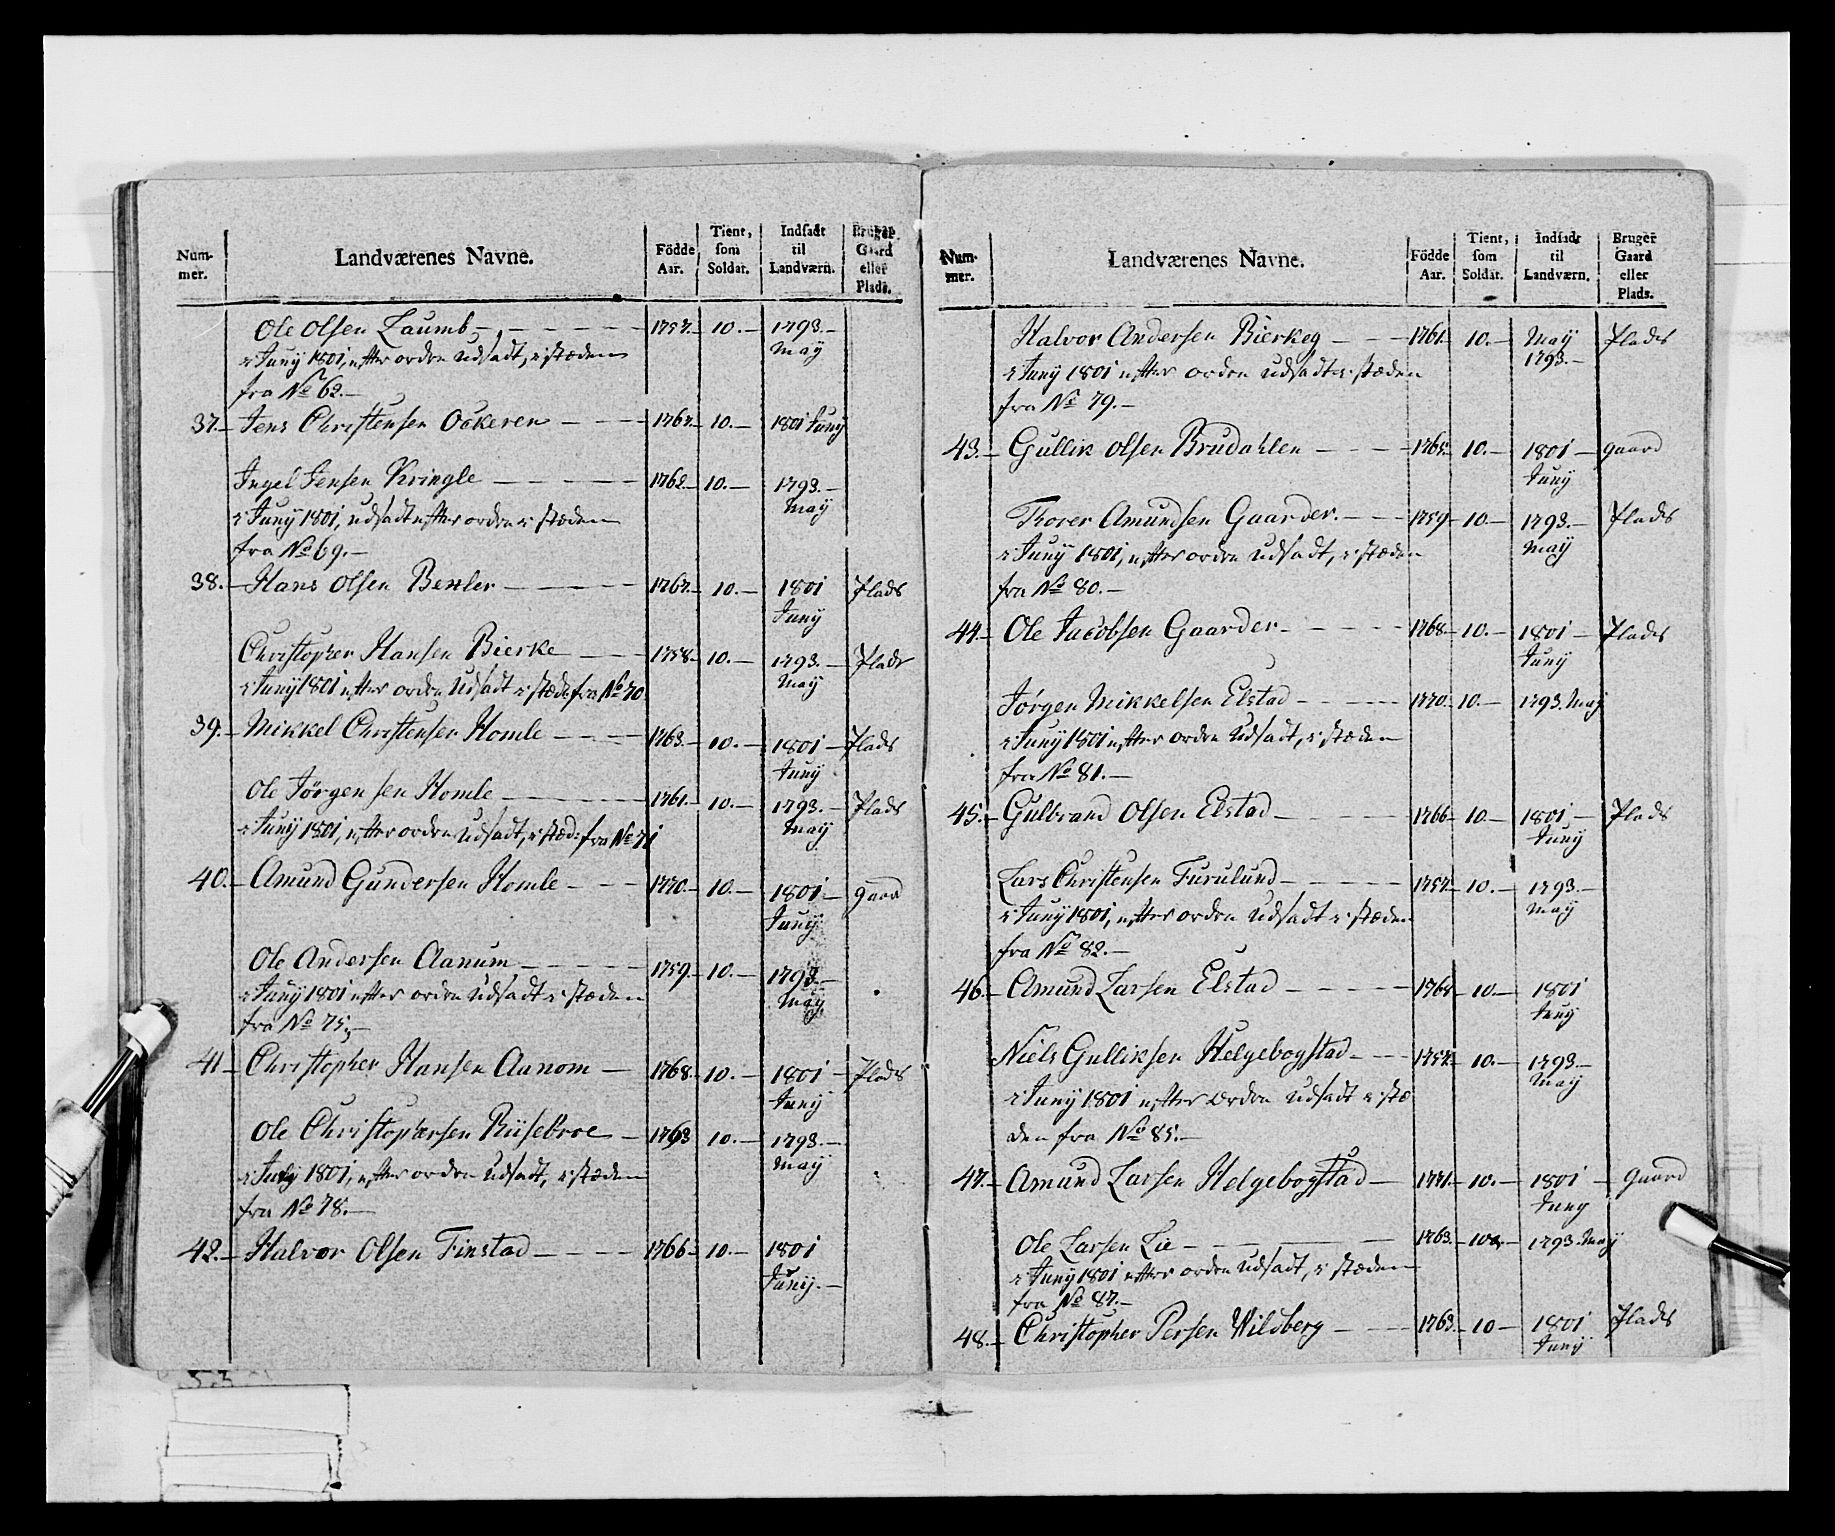 Num-mer. | Landværenes Navne. | Födde Aar. | Tient, som Soldat. | Indsadt til Landværn. | Bruger Gaard eller Plads.
Ole Olsen Laumb - - - - 1757. 10. - 1793. - May
i Juny 1801, efter ordre udsadt, i stæden
fra No 62. -
37. - Jens Christensen Ockeren - - - 1767. 10. - 1801 Juny
Ingel Jensen Kringle - - - - 1762. 10. - 1793. - May
i Juny 1801, udsadt efter ordre i stæden
fra No 69. -
38. - Hans Olsen Bexler - - - - 1767. 10. - 1801 Juny Plads
Christopher Hansen Bierke - - - 1758. 10. - 1793. - May Plads
i Juny 1801 efter ordre udsadt i stæde fra No 70
39. - Mikkel Christensen Homle - - - 1763. 10. - 1801 - Juny Plads
Ole Jörgensen Homle - - - - 1761. 10. - 1793. - May Plads
i Juny 1801, efter ordre udsadt, i stæd: fra No 71
40. - Amund Gundersen Homle - - - 1770. 10. - 1801 - Juny gaard
Ole Andersen Aanum - - - - 1759. 10. - 1793. - May
i Juny 1801 efter ordre udsadt i stæden
fra No 75. -
41 - Christopher Hansen Aanom - 1768. 10. - 1801 - Juny Plads
Ole Christophersen Riisebroe - 1763 10. - 1793. - May
i July 1801, efter ordre udsadt, i stæden
fra No 78. -
42. - Halvor Olsen Finstad - - - - 1766. 10. - 1801 Juny. -
Num-mer. | Landværenes Navne. | Födde Aar. | Tient, som Soldat. | Indsadt til Landværn. | Bruger Gaard eller Plads.
Halvor Andersen Bierkeg - - - 1761. 10. - May 1793. - Plads
i Juny 1801 efter ordre udsadt i stæden
fra No 79. -
43. - Gullik Olsen Brudahlen - - - - 1765. 10. - 1801 - Juny gaard
Torer Amundsen Gaarder. - - - 1759. 10. - 1793. - May Plads
i Juny 1801, efter ordre udsadt, i stæden
fra No 80. -
44. - Ole Jacobsen Gaarder - - - - 1768. 10. - 1801 - Juny Plads
Jörgen Mikkelsen Elstad - - - - 1770. 10. - 1793. May
i Juny 1801 efter ordre udsadt, i stæden
fra No 81. -
45. - Gulbrand Olsen Elstad - - - - 1766. 10. - 1801 - Juny Plads
Lars Christensen Furulund - - - - 1757. 10. - 1793. - May
i Juny 1801, efter ordre udsadt i stæden
fra No 82. -
46. - Amund Larsen Elstad - - - - 1768 10. - 1801 Juny
Niels Gulliksen Helgebogstad - - - 1757. 10. - 1793. - May
i Juny 1801 efter ordre udsadt i stæ
den fra No 85. -
47. - Amund Larsen Helgebogstad - 1771. 10. - 1801 - Juny gaard
Ole Larsen Lie - - - - 1763. 10. - 1793. May
i Juny 1801 efter ordre udsadt, i stæden
fra No 87. -
48. - Christopher Persen Wildberg - - - 1763. 10 - 1801 Juny Plads